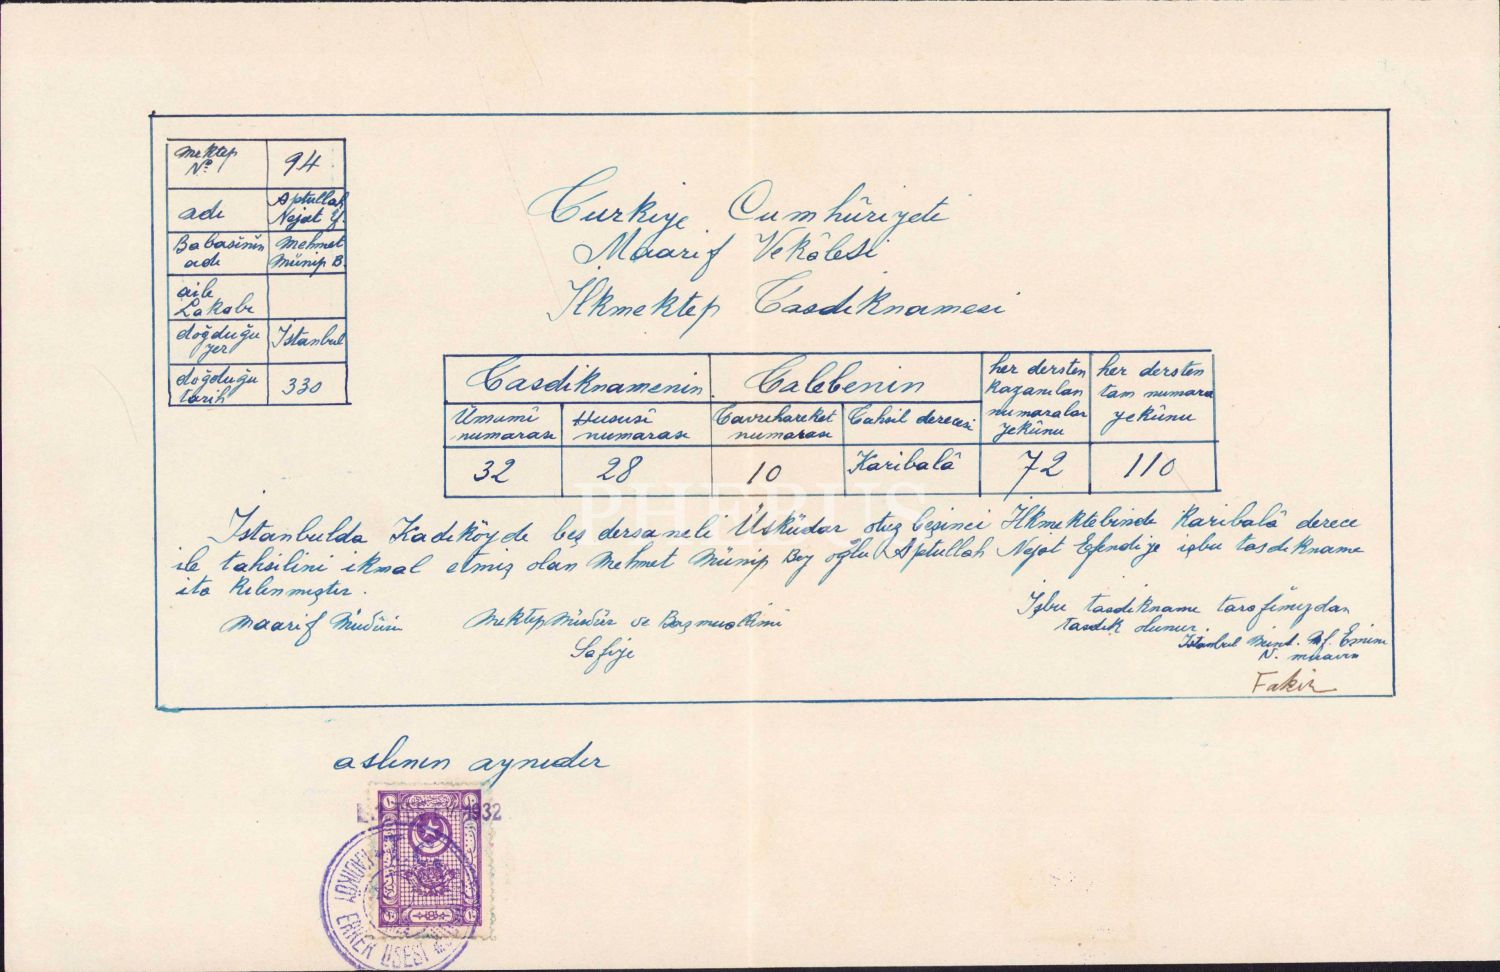 Mektep No 94
adı Aptullah Nejat Y.
Babasının adı Mehmet Münip B.
aile Lakabı
doğduğu yer İstanbul
doğduğu tarih 330
Turkiye Cumhûriyeti
Maarif Vekâlesi
İlkmektep Tasdiknamesi
Tasdiknamenin Talebenin her dersten kazanılan numaralar yekûnu her dersten tam numara yekûnu
Umumî numarası Hususî numarası Tavruhareket numarası Tahsil derecesi
32 28 10 Karibalâ 72 110
PHEBUS
İstanbulda Kadıköyde beş dersaneli Üsküdar otuz beşinci İlkmektebinde Karibalâ derece
ile tahsilini ikmal etmiş olan Mehmet Münip Bey oğlu Aptullah Nejat Efendiye işbu tasdikname
ita kılınmıştır.
Maarif Müdürü Mektep Müdürü ve Başmuallimi
Safiye
İşbu tasdikname tarafımızdan
tasdik olunur.
İstanbul Mınt. Mf. Emini
N. muavin
Fakir
aslının aynıdır
1932
KADIKÖY ERKEK LİSESİ